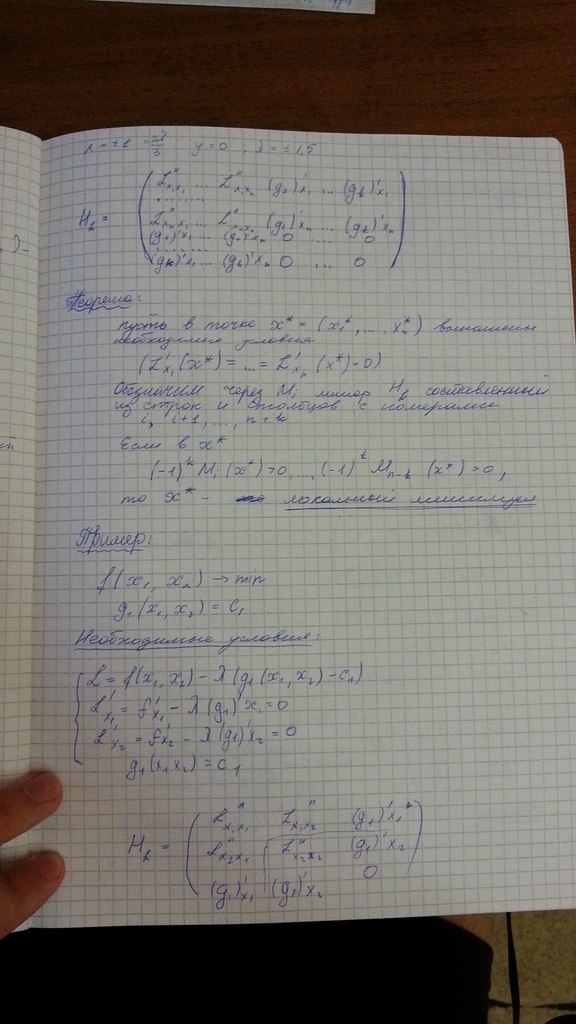 y=0 ; λ=±1,5
H_k = ( L''x₁x₁ ... L''x₁xₙ (g₁)'x₁ ... (gk)'x₁
.........
L''xₙx₁ ... L''xₙxₙ (g₁)'xₙ ... (gk)'xₙ
(g₁)'x₁ ... (g₁)'xₙ 0 ..... 0
.........
(gk)'x₁ ... (gk)'xₙ 0 ... 0 )
Теорема:
пусть в точке x* = (x₁*, ..., xₙ*) выполнены
необходимые условия
(L'x₁(x*) = ... = L'xₙ(x*) = 0)
Обозначим через Mᵢ минор H составленный
из строк и столбцов с номерами
i, i+1, ..., n+k
Если в x*
(-1)ᵏ M₁(x*) > 0, ..., (-1)ᵏ Mₙ₋ₖ (x*) > 0,
то x* - локальный минимум
Пример:
f(x₁, x₂) → min
g₁(x₁, x₂) = C₁
Необходимые условия:
L = f(x₁, x₂) - λ(g₁(x₁, x₂) - c₁)
L'x₁ = f'x₁ - λ(g₁)'x₁ = 0
L'x₂ = f'x₂ - λ(g₁)'x₂ = 0
g₁(x₁x₂) = c₁
H = ( L''x₁x₁ L''x₁x₂ (g₁)'x₁
L''x₂x₁ L''x₂x₂ (g₁)'x₂
(g₁)'x₁ (g₁)'x₂ 0 )